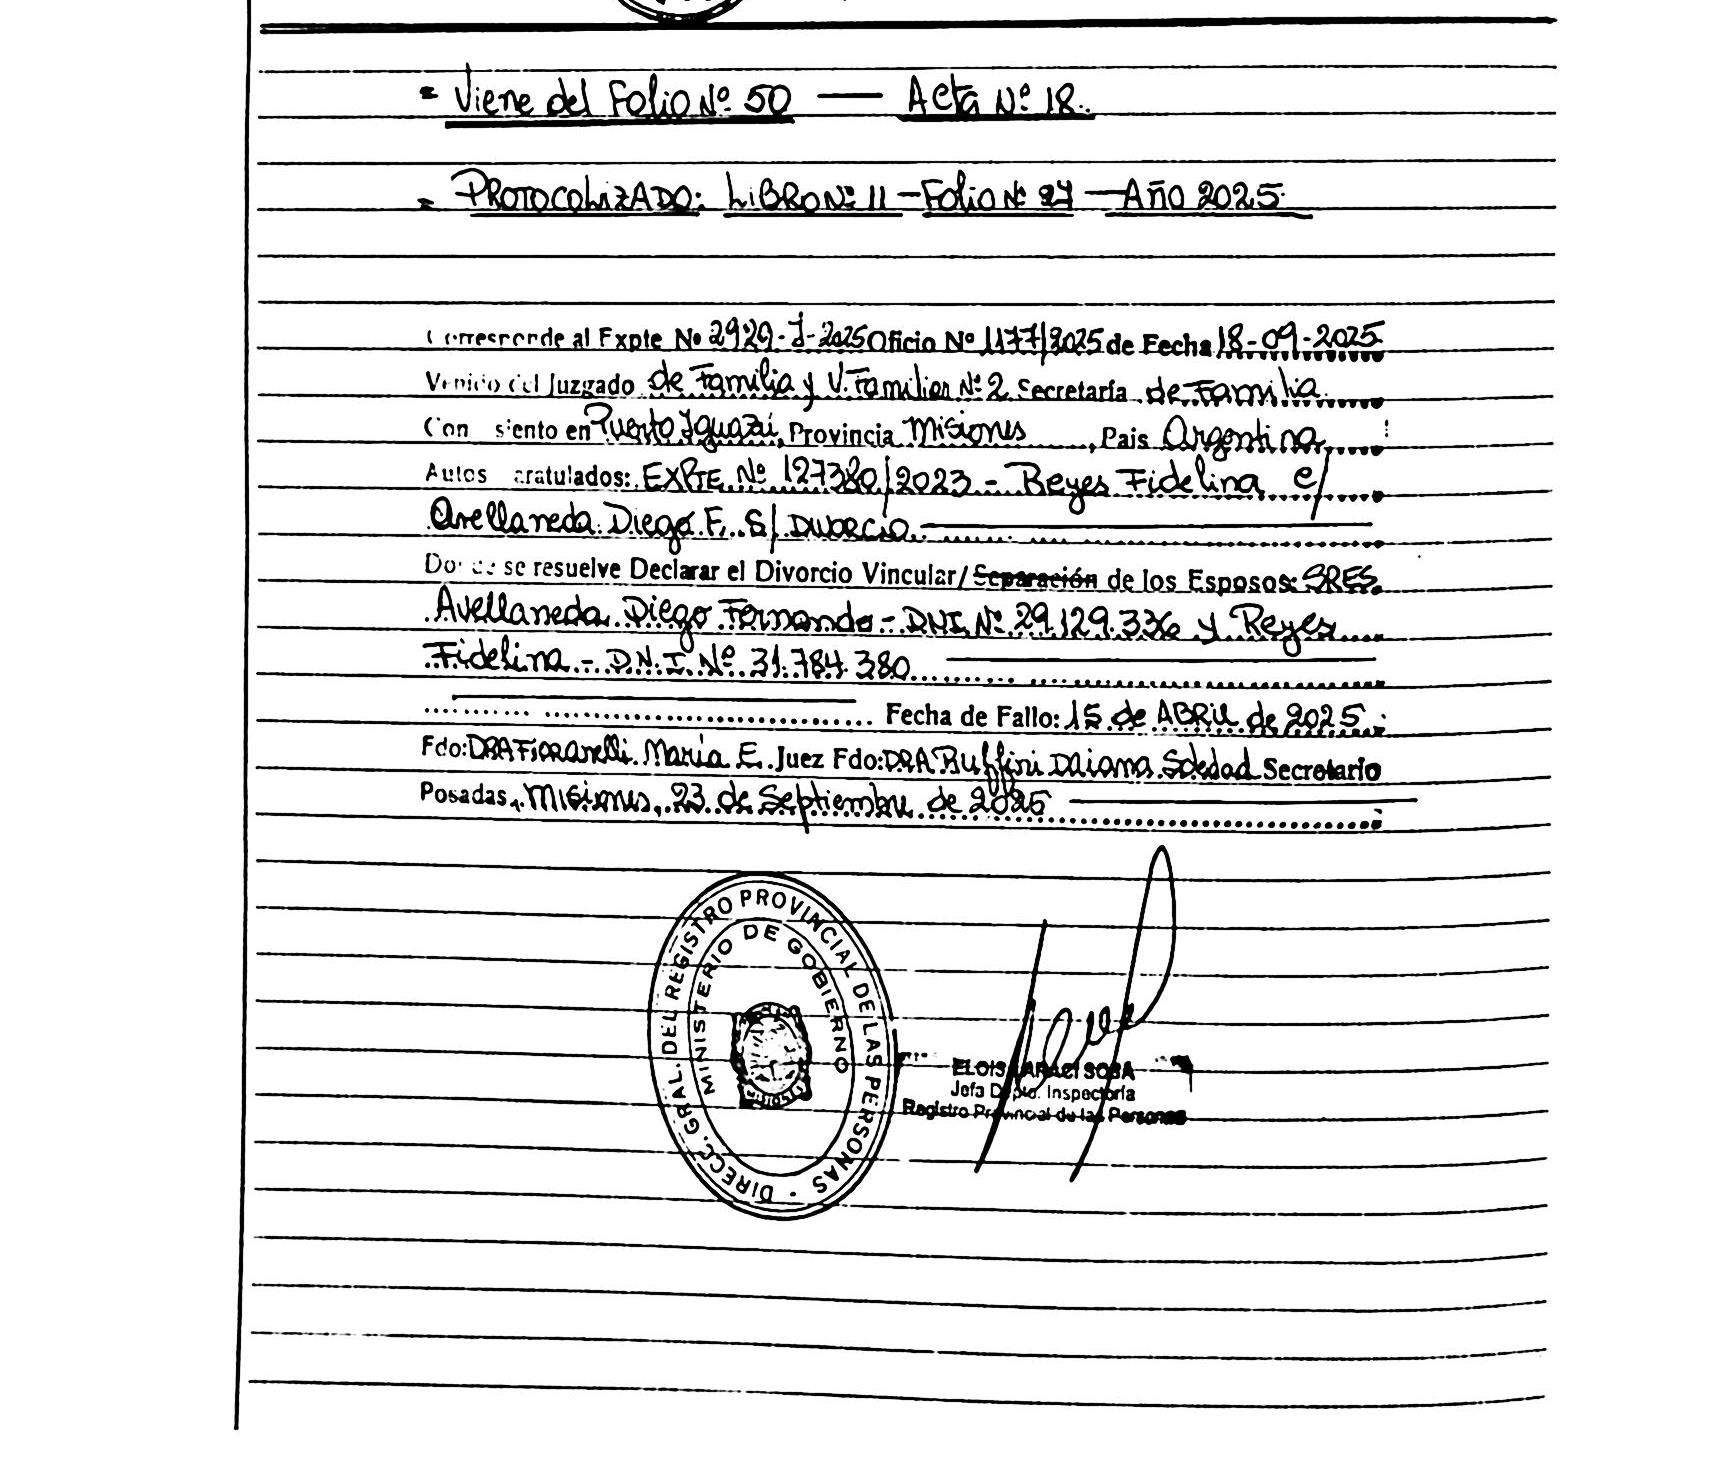 = Viene del Folio Nº 50 — Acta Nº 18.
= PROTOCOLIZADO: LiBRO Nº 11 - Folio Nº 27 — Año 2025.
Corresponde al Expte Nº 2929-J-2025 Oficio Nº 1177/2025 de Fecha 18-09-2025
Venido del Juzgado de Familia y V. Familiar Nº 2 Secretaría de Familia
Con asiento en Puerto Iguazú, Provincia Misiones, Pais Argentina
Autos caratulados: EXPTE Nº 127380/2023 - Reyes Fidelina c/
Avellaneda Diego F. S/ DIVORCIO
Donde se resuelve Declarar el Divorcio Vincular/Separación de los Esposos: SRES.
Avellaneda Diego Fernando - DNI Nº 29.129.336 y Reyes
Fidelina - D.N.I. Nº 31.784.380
Fecha de Fallo: 15 de ABRIL de 2025.
Fdo: DRA María E. Juez Fdo: DRA Ruffini Daiana Soledad Secretario
Posadas, Misiones, 23 de Septiembre de 2025
DIRECC. GRAL. DEL REGISTRO PROVINCIAL DE LAS PERSONAS
MINISTERIO DE GOBIERNO
ARACI SOSA
Jefa Dpto. Inspectoria
Registro Provincial de las Personas